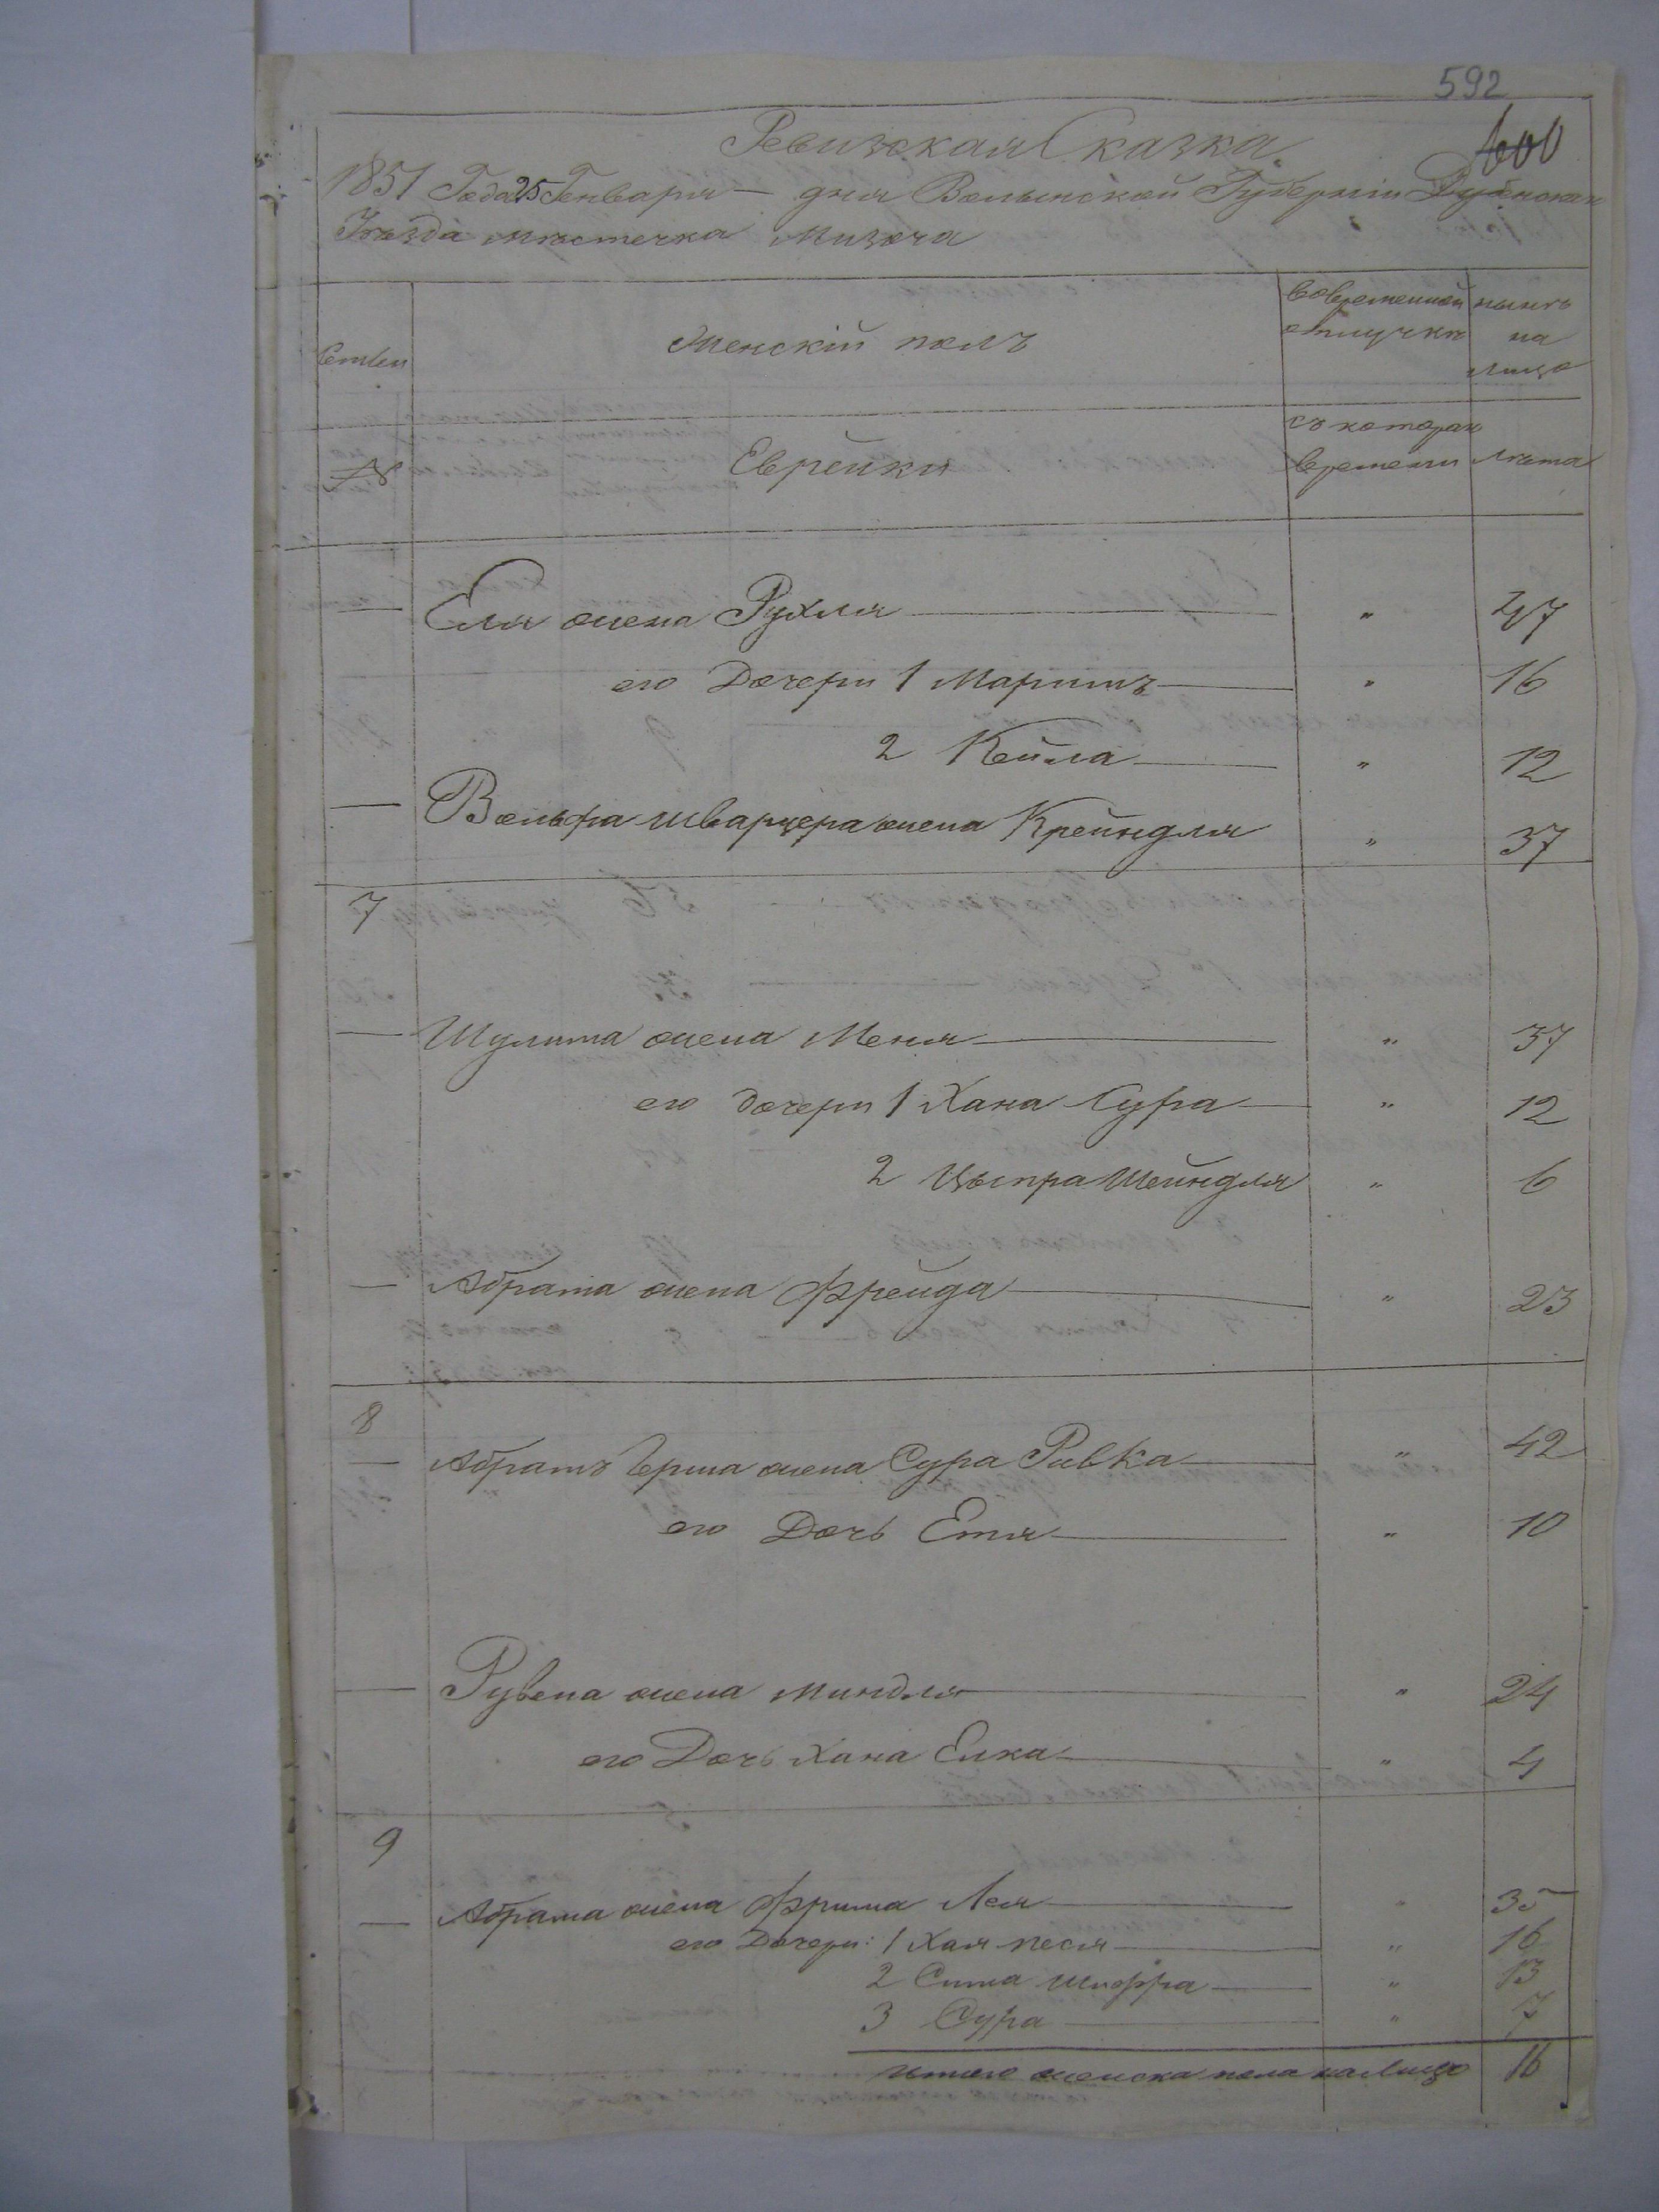 592
600
Ревизская Сказка
1851 Года 25 Генваря — дня Волынской Губернiи Дубенскаго
Уѣзда мѣстечка Мизоча
Семьи
Женскiй полъ
Вовременной отлучки
нынѣ на лицо
№
Еврейки
съ котораго времени
Лѣта
— Еля жена Рухля — " 47
его Дочери 1 Маримъ — " 16
2 Кейла — " 12
— Вольфа шварцера жена Крейндля " 37
7
— Шулима жена Меня — " 37
его дочери 1 Хана Сура — " 12
2 Цыпра Шейндля " 6
— Абрама жена Фрейда — " 23
8
— Абрамъ Герша жена Сура Ривка — " 42
его Дочь Етя — " 10
— Рувена жена миндля — " 24
его Дочь Хана Елка — " 4
9
— Абрама жена Фрима Лея — " 35
его Дочери: 1 Хая песя — " 16
2 Сима шифра — " 13
3 Сура — " 7
итого женска пола налицо 16